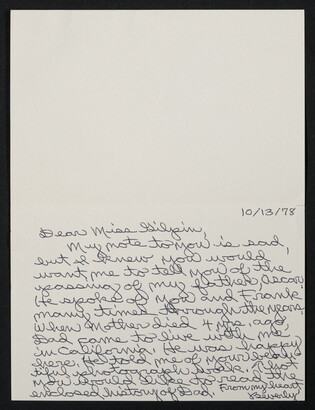 10/13/78
Dear Miss Gilpin,
My note to you is sad,
but I knew you would
want me to tell you of the
passing of my father, Oscar.
He spoke of you and Frank
many times through the years.
When Mother died 4 yrs. ago,
Dad came to live with me
in California. He was happy
here. He told me of your beau-
tiful photograph book. I that
you would like to read the
enclosed history of Dad.
From my heart
Beverly